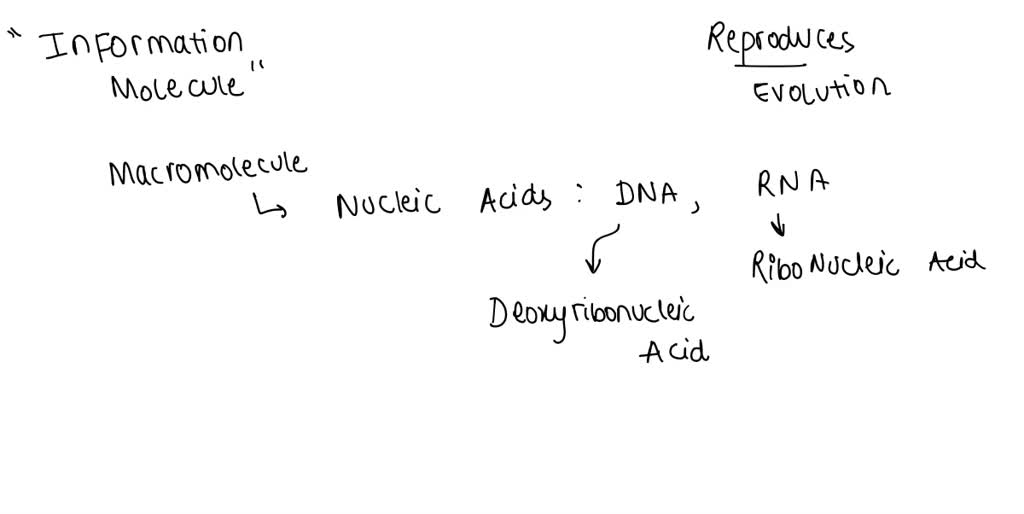 "Information
Molecule"
Reproduces
Evolution
Macromolecule
↳ Nucleic Acids : DNA, RNA
Ribo Nucleic Acid
Deoxyribonucleic
Acid